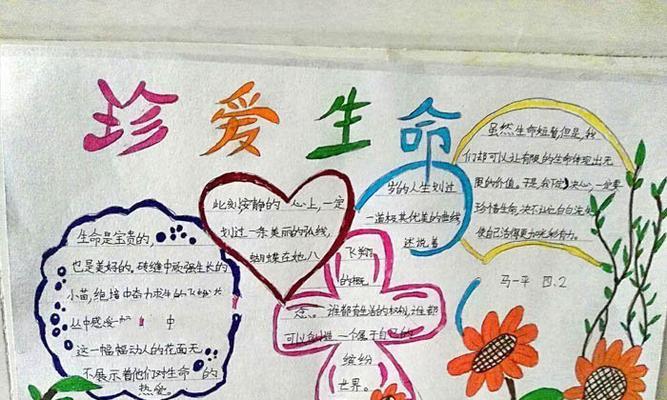 珍爱生命
生命是宝贵的,
也是美好的。砖缝中顽强生长的
小苗,绝境中奋力求生的飞蛾
丛中感受 中
这一幅幅动人的花面无
不展示着他们对生命的
热爱。
此刻安静的心上,一定
划过一条美丽的弘线,
蝴蝶在她八
岁的人生划过
一道极其优美的曲线,
述说着
飞翔
的概
念。谁都有生活的权利,谁都
可以创造一个属于自己的
缤纷
世界。
虽然生命短暂但是,我
们却可以让有限的生命体现出无
限的价值。于是,我下决心,一定要
珍惜生命,决不让它白白流
使自己活得更加光彩有力。
马一平 四.2